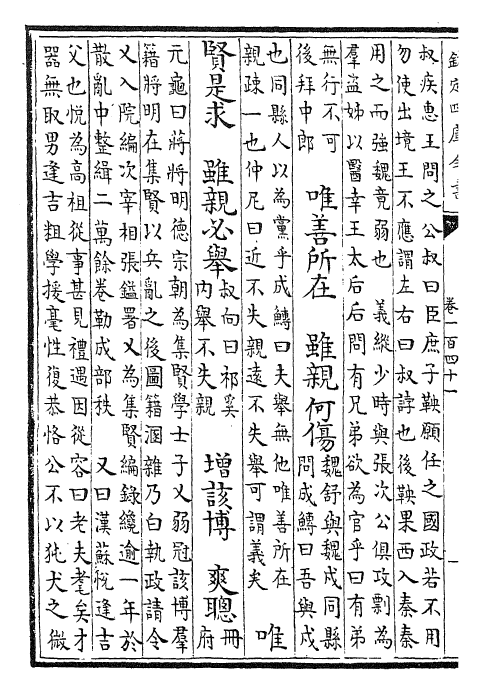 欽定四庫全書 卷一百四十一 一
叔疾惠王問之公叔曰臣庶子鞅願任之國政若不用
勿使出境王不應謂左右曰叔誖也後鞅果西入秦秦
用之而強魏竟弱也 義縱少時與張次公俱攻剽為
羣盜姊以醫幸王太后后問有兄弟欲為官乎曰有弟
無行不可
後拜中郎
唯善所在 雖親何傷
魏舒與魏戍同縣
問成鱄曰吾與戍
也同縣人以為黨乎成鱄曰夫舉無他唯善所在
親疎一也仲尼曰近不失親遠不失舉可謂義矣
唯
賢是求 雖親必舉
叔向曰祁奚
内舉不失親
增該博 爽聰
冊
府
元龜曰蔣將明德宗朝為集賢學士子乂弱冠該博羣
籍將明在集賢以兵亂之後圖籍溷雜乃白執政請令
乂入院編次宰相張鎰署乂為集賢編錄纔逾一年於
散亂中整緝二萬餘卷勒成部秩 又曰漢蘇悅逢吉
父也悅為高祖從事甚見禮遇因從容曰老夫耄矣才
器無取男逢吉粗學援毫性復恭恪公不以㹠犬之微